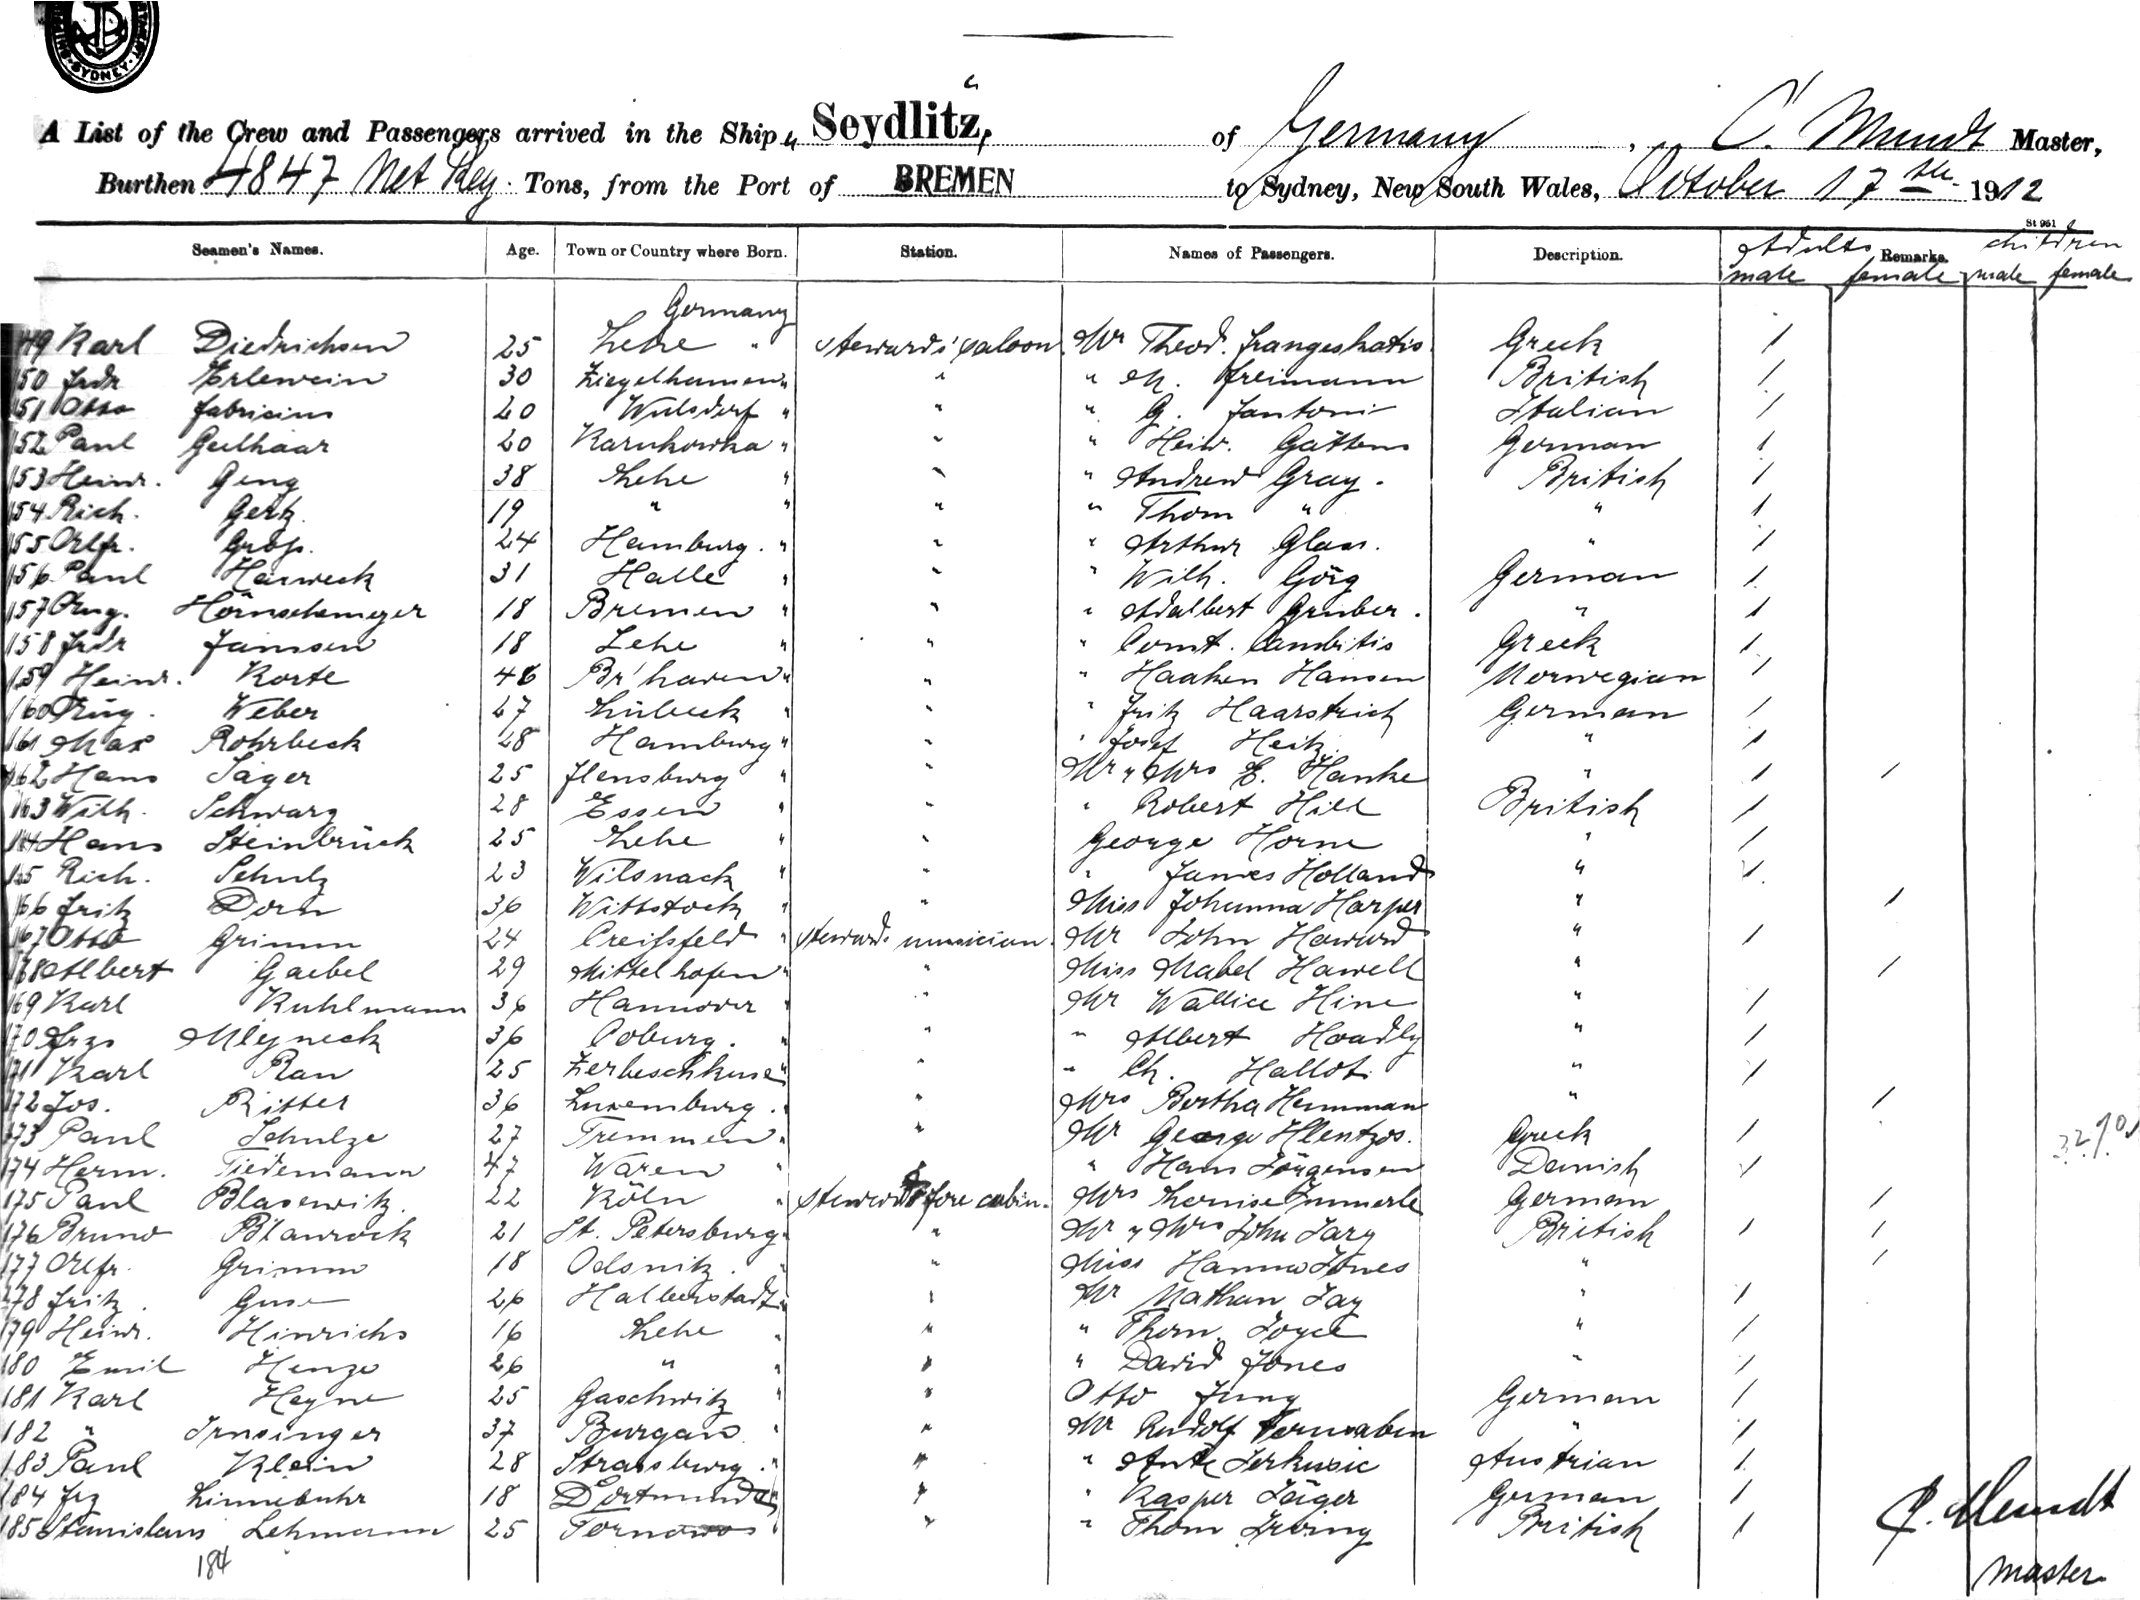 SYDNEY
A List of the Crew and Passengers arrived in the Ship „ Seydlitz, “ of Germany, C. Mundt Master,
Burthen 4847 Net Reg. Tons, from the Port of BREMEN to Sydney, New South Wales, October 17th 1912
St 951
Seamen's Names. Age. Town or Country where Born. Station. Names of Passengers. Description. Remarks. Adults children
male female male female
Germany
149 Karl Diedrichsen 25 Lehe " stewards' saloon Mr Theod. frangeskatis Greek /
150 frdr Erlewein 30 Ziegelhausen " " " M. freimann British /
151 Otto fabricius 20 Wulsdorf " " " G. fantoni Italian /
152 Paul Geelhaar 20 " " " Heinr. German /
153 Heinr. Geng 38 Lehe " " " Andrew Gray. British /
154 Rich. Gertz. 19 " " " " Thom " " /
155 Alfr. Groß. 24 Hamburg. " " " Arthur Glass. " /
156 Paul Harweck 31 Halle " " " Wilh. Görg German /
157 Aug. Hörnschemeyer 18 Bremen " " " Adalbert Gruber. " /
158 frdr Janssen 18 Lehe " " " Const. Cambitis Greek /
159 Heinr. Korte 46 Br'haven " " " Haaken Hansen Norwegian /
160 Aug. Weber 27 Lübeck " " " fritz Haarstrich German /
161 Max Rohrbeck 28 Hamburg " " " Josef Heitz. " /
162 Hans Jäger 25 flensburg " " Mr " Mrs E. Hanke " / /
163 Wilh. Schwarz 28 Essen " " " Robert Hill British /
164 Hans Steinbrück 25 Lehe " " George Horne " /
165 Rich. Schulz 23 Wilsnack " " " James Holland " /
166 fritz Dorn 36 Wittstock " " Miss Johanna Harper " /
167 Otto Grimm 24 Creifsfeld " stewards musician. Mr John Howard " /
168 Albert Gaebel 29 Mittelhofen " " Miss Mabel Hawell " /
169 Karl Kuhlmann 36 Hannover " " Mr Wallice Hine " /
170 Mlejneck 36 Coburg. " " " Albert Hoadly " /
171 Karl Rau 25 " " " Ch. Hallot. " /
172 Jos. Ritter 36 Luxemburg. " " Mrs Bertha Hemman " /
173 Paul Schulze 27 Tremmen " " Mr George Hlentzos. Greek /
174 Herm. Tiedemann 47 Waren " " " Hans Jörgensen Danish /
175 Paul Blasewitz. 22 Köln " stewards fore cabin. Mrs Louise Immerle German /
176 Bruno Blaurock 21 St. Petersburg " " Mr " Mrs John Jary British / /
177 Alfr. Grimm 18 Oelsnitz. " " Miss Hanna Jones " /
178 fritz. Guse 26 Halberstadt " " Mr Nathan Jay " /
179 Heinr. Hinrichs 16 Lehe " " " Thom. Joyce " /
180 Emil Henze 26 " " " " David Jones " /
181 Karl Heyne 25 Gaschwitz " " Otto Jung German /
182 " Irnsinger 37 Burgau " " Mr Rudolf " /
183 Paul Klein 28 Strassburg. " " " Ante Jerkusic Austrian /
184 frz Linnebuhr 18 Dortmund " " " Kasper Jäger German /
185 Stanislaus Lehmann 25 Tornowo " " " Thom Irving British /
184
C. Mundt
Master